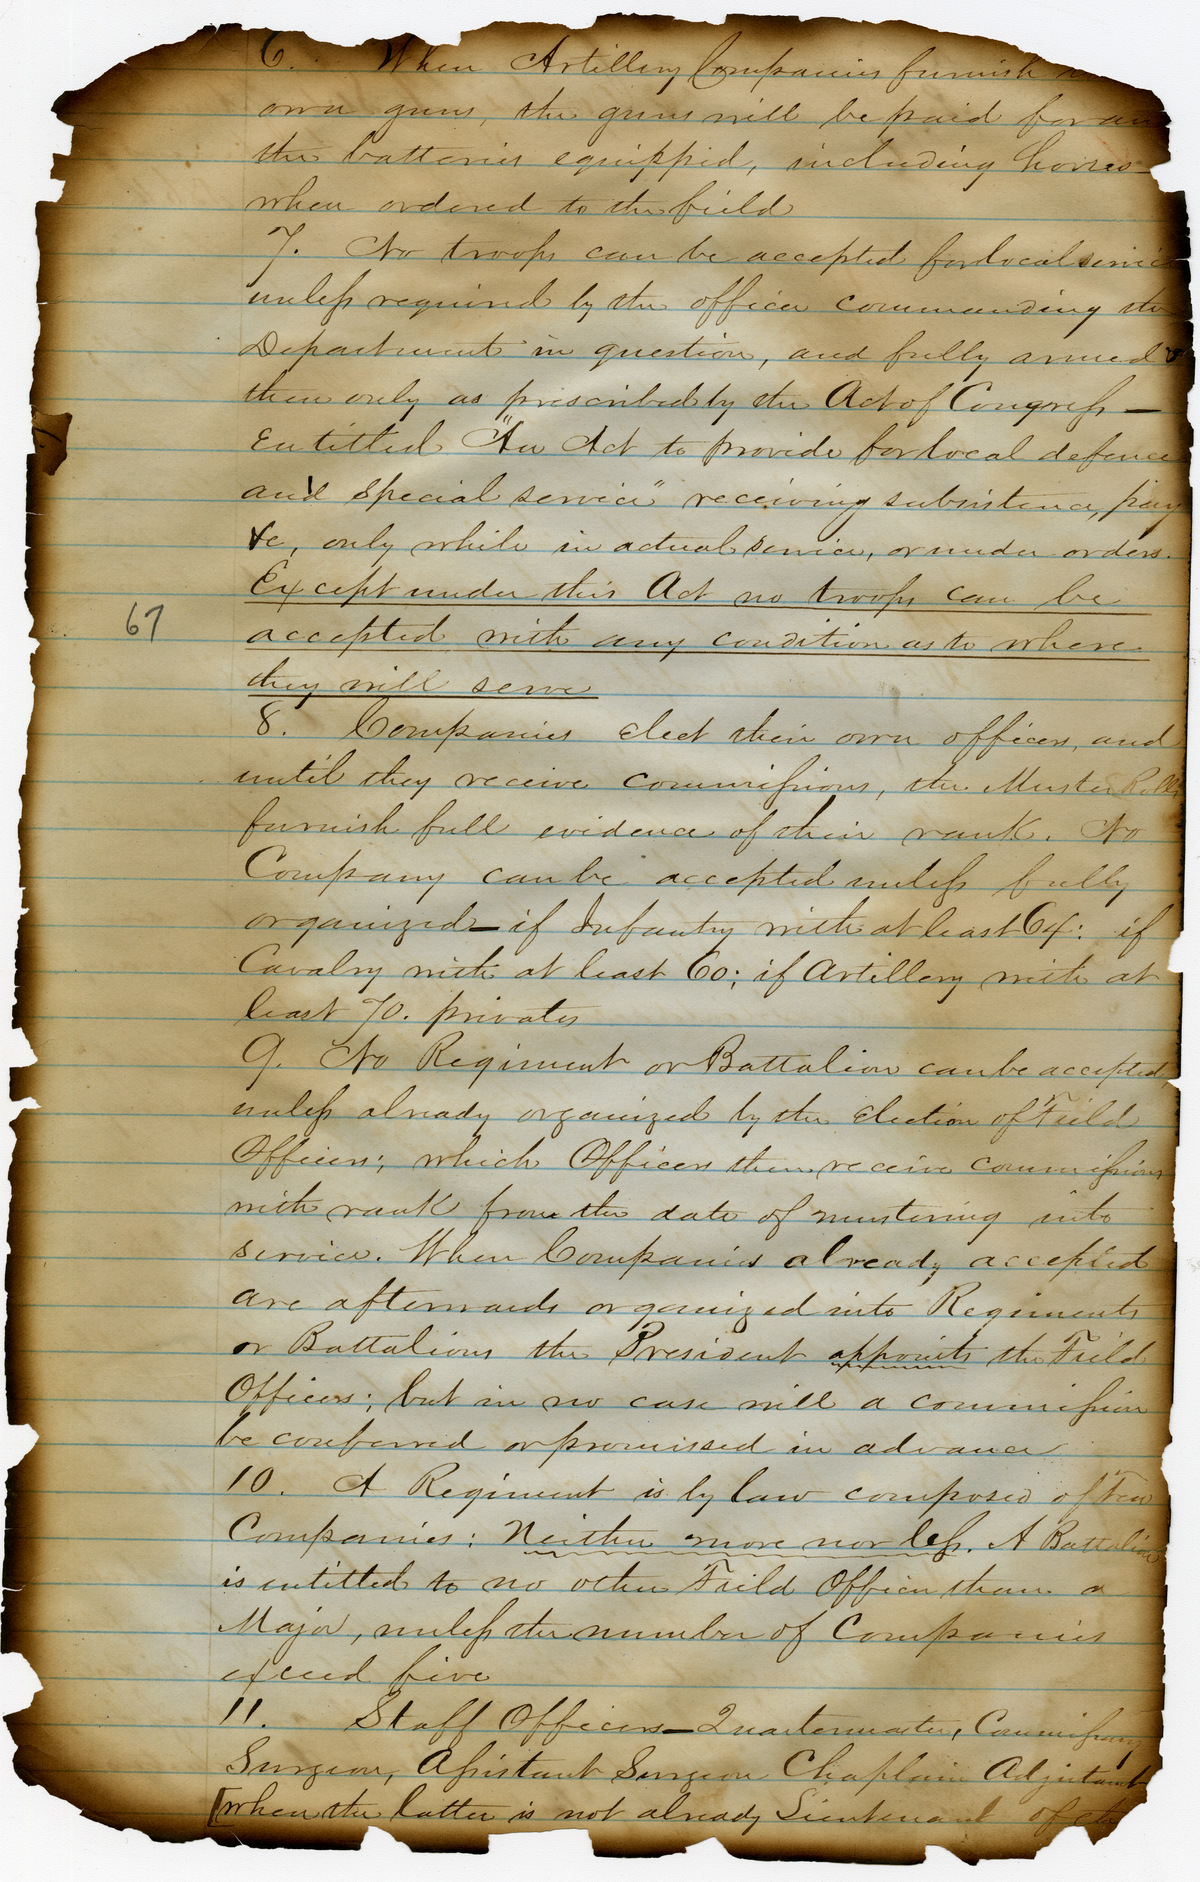 6. When Artillery Companies furnish
own guns, the guns will be paid for an
the batteries equipped, including horses
when ordered to the field
7. No troops can be accepted for local service
unless required by the officer commanding the
Department in question, and fully armed &
then only as prescribed by the Act of Congress —
Entitled "An Act to provide for local defence
and special service" receiving subsistence, pay
&c, only while in actual service, or under orders.
Except under this Act no troops can be
accepted with any condition as to where
they will serve
67
8. Companies elect their own officers, and
until they receive commissions, the Muster Rolls
furnish full evidence of their rank. No
Company can be accepted unless fully
organized — if Infantry with at least 64: if
Cavalry with at least 60; if Artillery with at
least 70. privates
9. No Regiment or Battalion can be accepted
unless already organized by the election of Field
Officers; which Officers then receive commissions
with rank from the date of mustering into
service. When Companies already accepted
are afterwards organized into Regiments
or Battalions the President appoints the Field
Officers; but in no case will a commission
be conferred or promissed in advance
10. A Regiment is by law composed of Ten
Companies: Neither more nor less. A Battalion
is intitled to no other Field Officer than a
Major, unless the number of Companies
exceed five
11. Staff Officers — Quartermaster, Commissary
Surgeon, Assistant Surgeon Chaplain Adjutant
[when the latter is not already Lieutenant of the